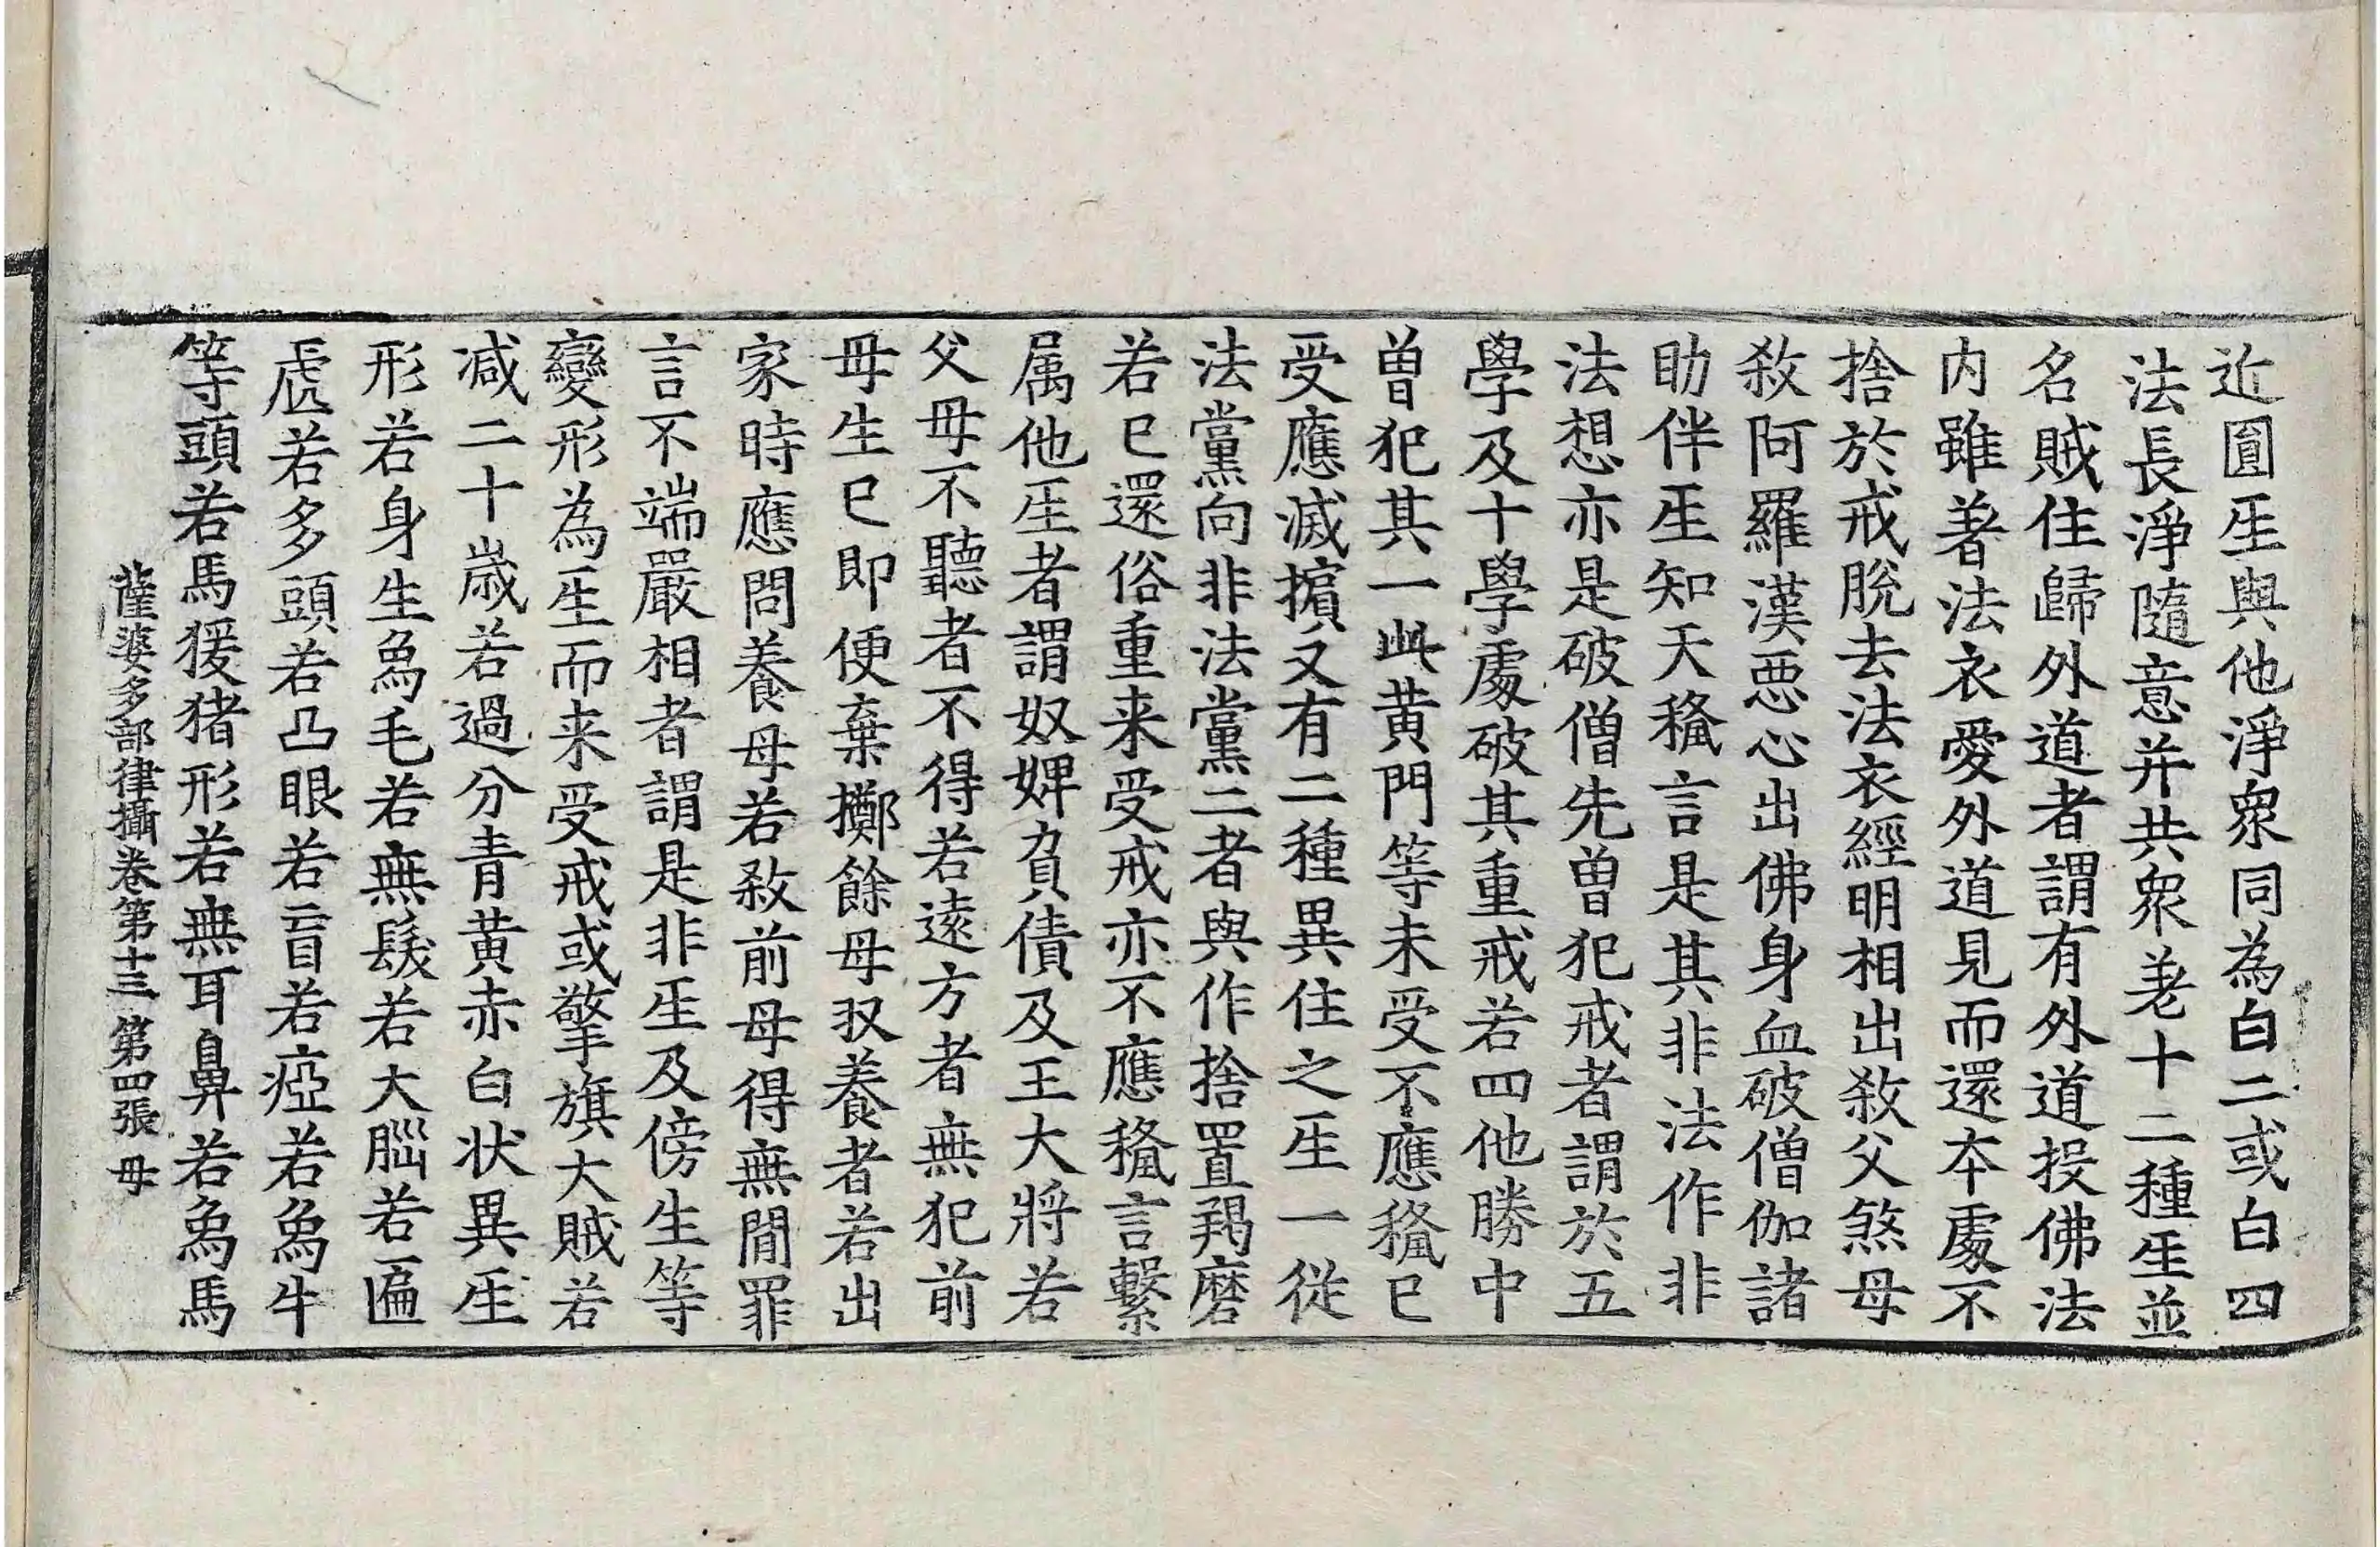 近圎𤯔與他淨衆同為白二或白四
法長淨隨意并共衆羌十二種𤯔並
名賊住歸外道者謂有外道投佛法
内雖著法衣愛外道見而還本處不
捨於戒脫去法衣經明相出殺父煞母
殺阿羅漢惡心出佛身血破僧伽諸
助伴𤯔知天稱言是其非法作非
法想亦是破僧先曾犯戒者謂於五
學及十學處破其重戒若四他勝中
曾犯其一此黄門等未受不應稱已
受應滅擯又有二種異住之生一從
法黨向非法黨二者與作捨置羯磨
若已還俗重来受戒亦不應稱言繫
属他𤯔者謂奴婢負債及王大將若
父母不聽者不得若遠方者無犯前
母生已即便棄擲餘母収養者若出
家時應問養母若殺前母得無間罪
言不端嚴相者謂是非𤯔及傍生等
變形為𤯔而来受戒或擎旗大賊若
减二十歲若過分青黄赤白状異𤯔
形若身生象毛若無髮若大腦若匾
㢮若多頭若凸眼若盲若瘂若象牛
等頭若馬猨猪形若無耳鼻若象馬
薩婆多部律攝卷第十三 第四張 母